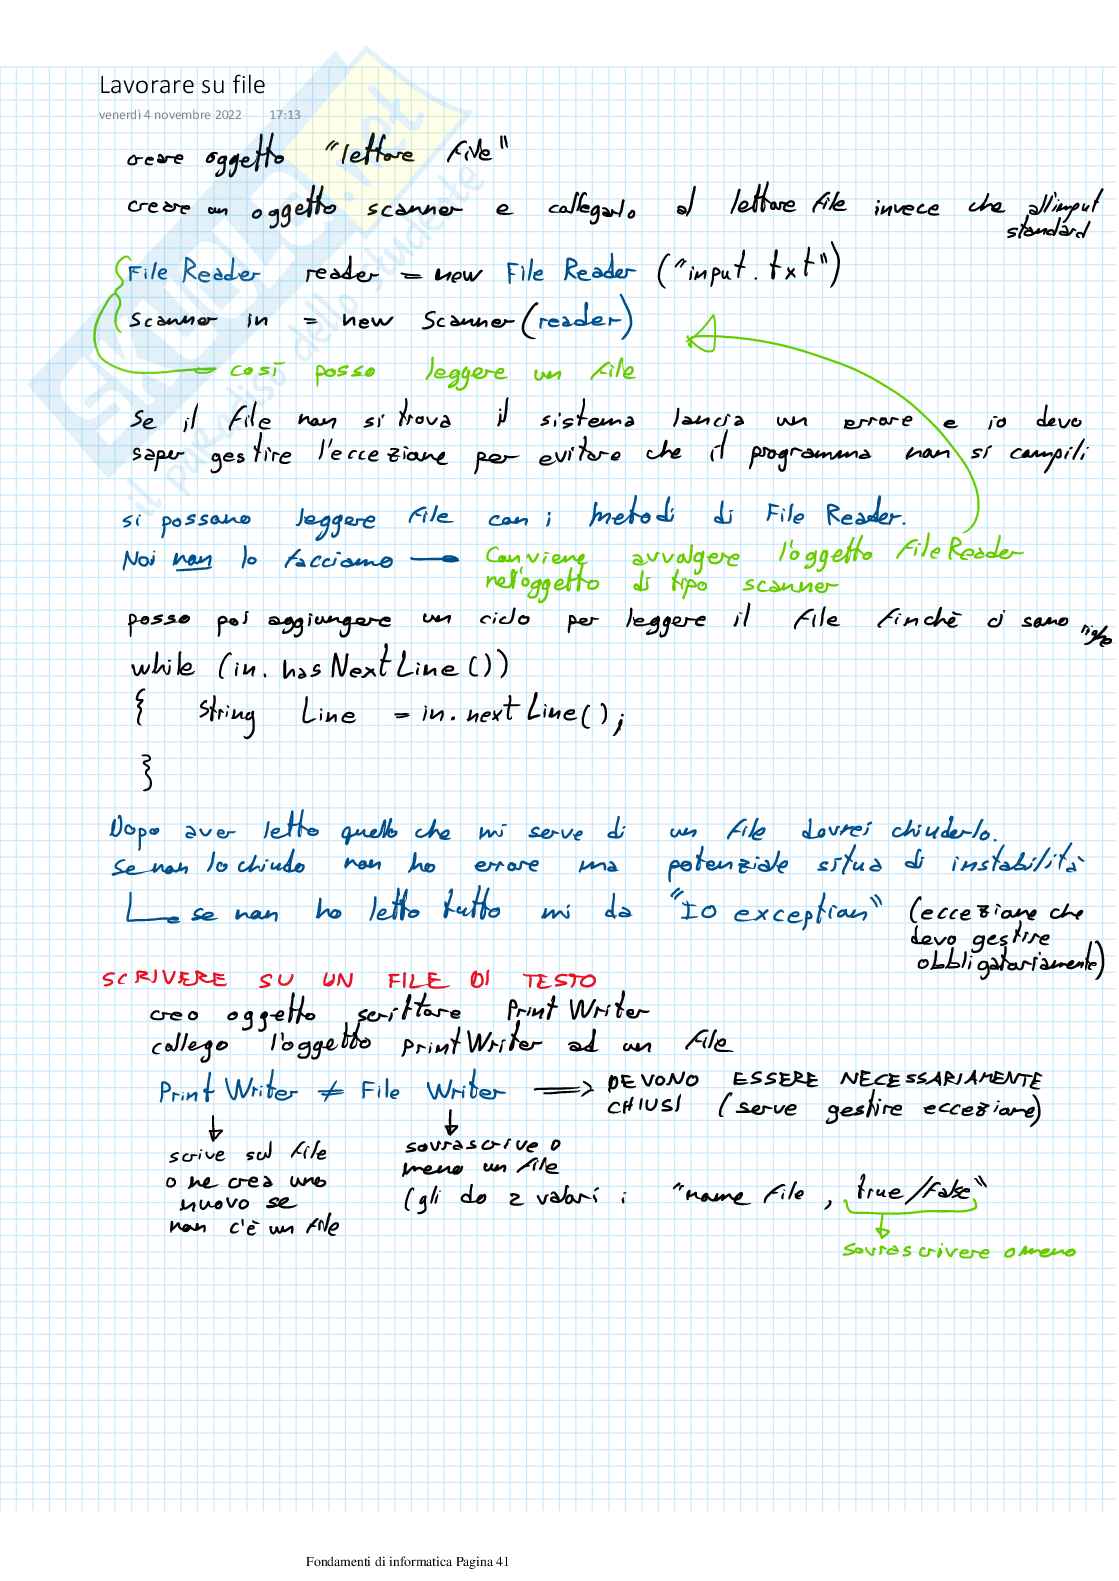 Lavorare su file
venerdì 4 novembre 2022 17:13
creare oggetto "lettore file"
creare un oggetto scanner e collegarlo al lettore file invece che all'input
standard
File Reader reader = new File Reader ("input.txt")
Scanner in = new Scanner (reader)
così posso leggere un file
Se il file non si trova il sistema lancia un errore e io devo
saper gestire l'eccezione per evitare che il programma non si compili
si possono leggere file con i metodi di File Reader.
Noi non lo facciamo → Conviene avvolgere l'oggetto FileReader
nell'oggetto di tipo scanner
posso poi aggiungere un ciclo per leggere il file finchè ci sono righe
while (in. has Next Line ())
{ String Line = in. next Line();
}
Dopo aver letto quello che mi serve di un file dovrei chiuderlo.
se non lo chiudo non ho errore ma potenziale situa di instabilità
se non ho letto tutto mi da "IO exception" (eccezione che
devo gestire
obbligatoriamente)
SCRIVERE SU UN FILE DI TESTO
creo oggetto scrittore Print Writer
collego l'oggetto print Writer ad un file
Print Writer ≠ File Writer ⇒ DEVONO ESSERE NECESSARIAMENTE
CHIUSI (serve gestire eccezione)
scrive sul file
o ne crea uno
nuovo se
non c'è un file
sovrascrive o
meno un file
(gli do 2 valori : "name file , true/false"
sovrascrivere o meno
Fondamenti di informatica Pagina 41
SKUOLA.net
il paradiso dello studente